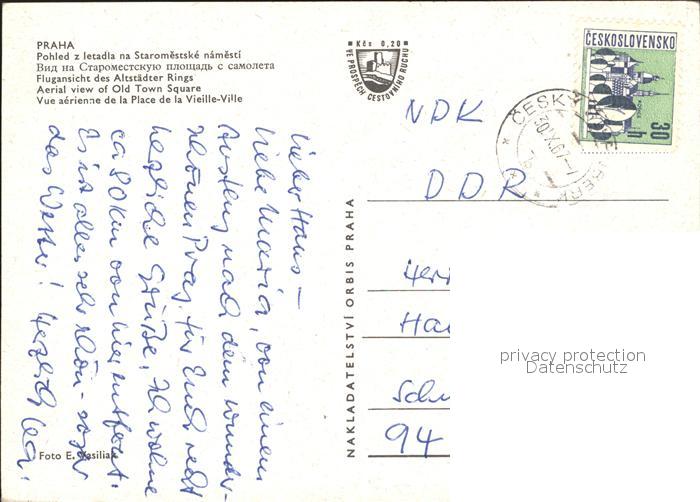 PRAHA
Pohled z letadla na Staroměstské náměstí
Вид на Староместскую площадь с самолета
Flugansicht des Altstädter Rings
Aerial view of Old Town Square
Vue aérienne de la Place de la Vieille-Ville
Kčs 0,20
VE PROSPĚCH CESTOVNÍHO RUCHU
ČESKOSLOVENSKO
30 h
ČESKÁ
30.IX.67-7
NDK
DDR
Lieber Hans –
liebe Maria, von einem
Ausflug nach dem wunder-
schönen Prag, für Euch recht
herzliche Grüße. Ich wohne
ca 80 km von hier entfernt.
Es ist alles sehr schön – sogar
das Wetter! Herzlichst
NAKLADATELSTVÍ ORBIS PRAHA
Herr
Ha
Sch
94
privacy protection
Datenschutz
Foto E. Vasiliak